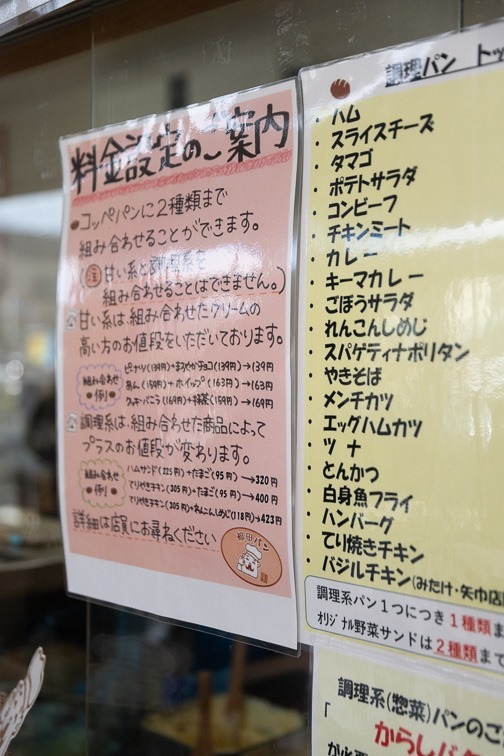 料金設定のご案内
コッペパンに2種類まで
組み合わせることができます。
(注 甘い系と調理系を
組み合わせることはできません。)
甘い系は、組み合わせたクリームの
高い方のお値段をいただいております。
組み合わせ
例
ピーナツ(139円)+まろやかチョコ(139円)→139円
あん(159円)+ホイップ(163円)→163円
クッキーバニラ(169円)+抹茶(159円)→169円
調理系は、組み合わせた商品によって
プラスのお値段が変わります。
組み合わせ
例
ハムサンド(225円)+たまご(95円)→320円
てりやきチキン(305円)+たまご(95円)→400円
てりやきチキン(305円)+れんこんしめじ(118円)→423円
詳細は店員にお尋ねください
福田パン
調理パン トッ
・ハム
・スライスチーズ
・タマゴ
・ポテトサラダ
・コンビーフ
・チキンミート
・カレー
・キーマカレー
・ごぼうサラダ
・れんこんしめじ
・スパゲティナポリタン
・やきそば
・メンチカツ
・エッグハムカツ
・ツナ
・とんかつ
・白身魚フライ
・ハンバーグ
・てり焼きチキン
・バジルチキン(みたけ・矢巾店
調理系パン1つにつき1種類ま
オリジナル野菜サンドは2種類まで
調理系(惣菜)パンのご
「からし